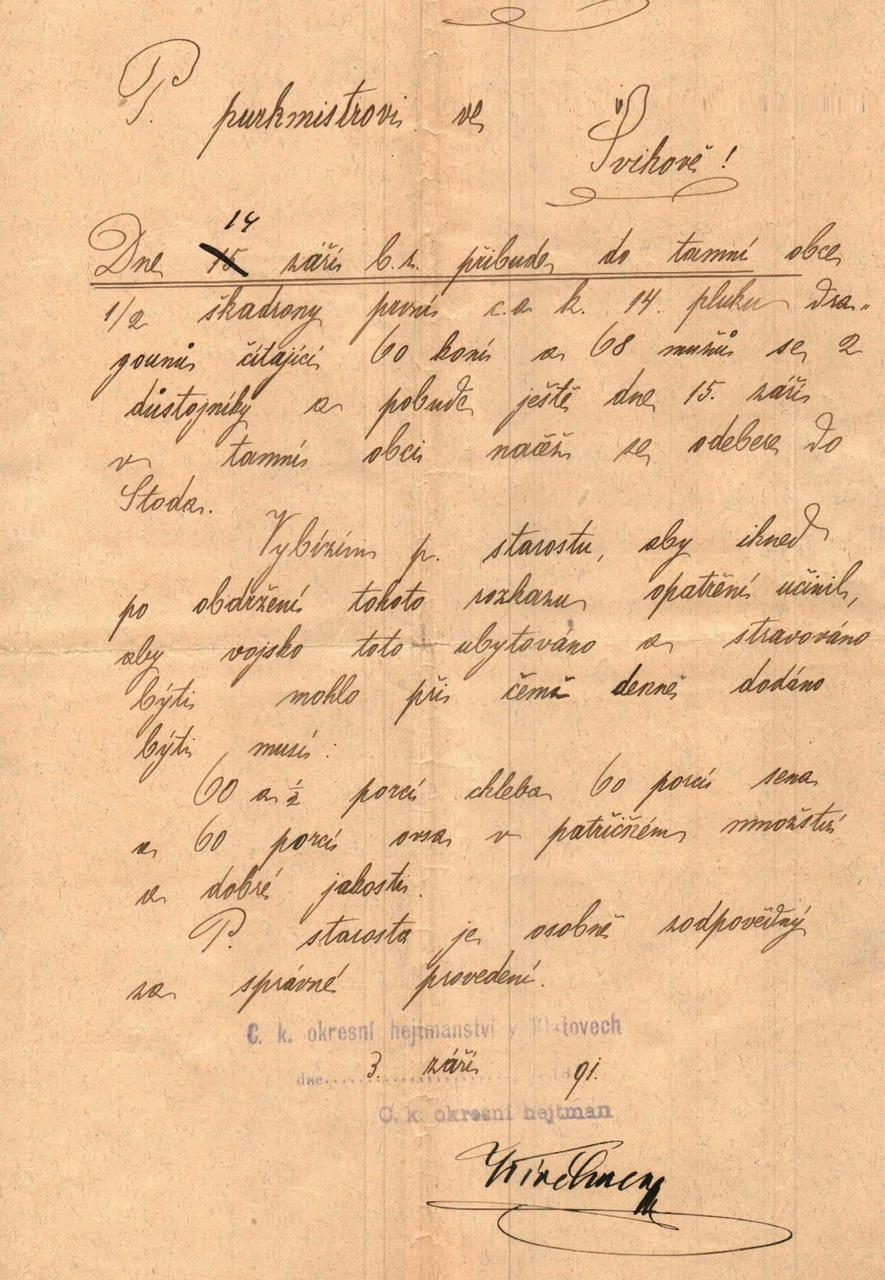 P. purkmistrovi ve
Švihově!
14
Dne 15 září b.r. přibude do tamní obce
1/2 škadrony první c. a k. 14. pluku dra„
gounů čítající 60 koní a 68 mužů se 2
důstojníky a pobude ještě dne 15. září
v tamní obci načež se odebere do
Stoda.
Vybízím p. starostu, aby ihned
po obdržení tohoto rozkazu opatření učinil,
aby vojsko toto ubytováno a stravováno
býti mohlo při čemž denně dodáno
býti musí:
60 a ½ porcí chleba 60 porcí sena
a 60 porcí ovsa v patřičném množství
a dobré jakosti.
P. starosta je osobně zodpovědný
za správné provedení.
C. k. okresní hejtmanství v Klatovech
dne 3. září 1891.
C. k. okresní hejtman